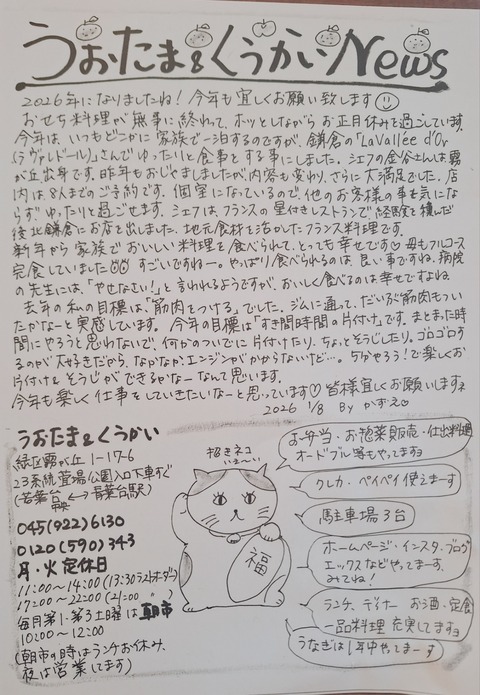 うおたま&くうかいNews
2026年になりましたね!今年も宜しくお願い致します
おせち料理が無事に終わって、ホッとしながらお正月休みを過ごしています。
今年は、いつもどこかに家族で一泊するのですが、鎌倉の「LaVallée d'Or
(ラヴァレドール)」さんでゆったりと食事をする事にしました。シェフの金谷さんは霧
が丘出身です。昨年もおじゃましましたが、内容も変わり、さらに大満足でした。店
内は、8人までのご予約です。個室になっているので、他のお客様の事も気にな
らず、ゆったりと過ごせます。シェフは、フランスの星付きレストランで経験を積んだ
後北鎌倉にお店を出しました。地元食材を活かしたフランス料理です。
新年から家族でおいしい料理を食べられて、とっても幸せです♡母もフルコース
完食していました すごいですねー。やっぱり食べられるのは、良い事ですね。病院
の先生には、「やせなさい!」と言われるようですが、おいしく食べるのは幸せですよね。
去年の私の目標は、「筋肉をつける」でした。ジムに通って、だいぶ筋肉もつい
たかなーと実感しています。今年の目標は「すき間時間の片付け」です。まとまった時
間にやろうと思わないで、何かのついでに片付けたり、ちょっとそうじしたり。ゴロゴロす
るのが大好きだから、なかなかエンジンがかからないけど…。5分やろう!で楽しくお
片付け&そうじができるかなーなんて思います。
今年も楽しく仕事をしていきたいなーと思っています♡皆様宜しくお願いします
2026 1/8 By かずえ
うおたま&くうかい
緑区霧が丘1-17-6
23系統 萱場公園入口下車すぐ
(若葉台中央↔青葉台駅)
045(922)6130
0120(590)343
月・火定休日
11:00~14:00(13:30ラストオーダー)
17:00~22:00(21:00 〃)
毎月第1・第3土曜は朝市
10:00~12:00
(朝市の時はランチお休み、
夜は営業してます)
招きネコ
福
お弁当・お惣菜販売・仕出料理
オードブル等もやってます
クレカ・ペイペイ使えまーす
駐車場3台
ホームページ・インスタ・ブログ
エックスなどやってまーす。
みてね!
ランチ、ディナー お酒・定食
一品料理 充実してます
うなぎは1年中やってまーす